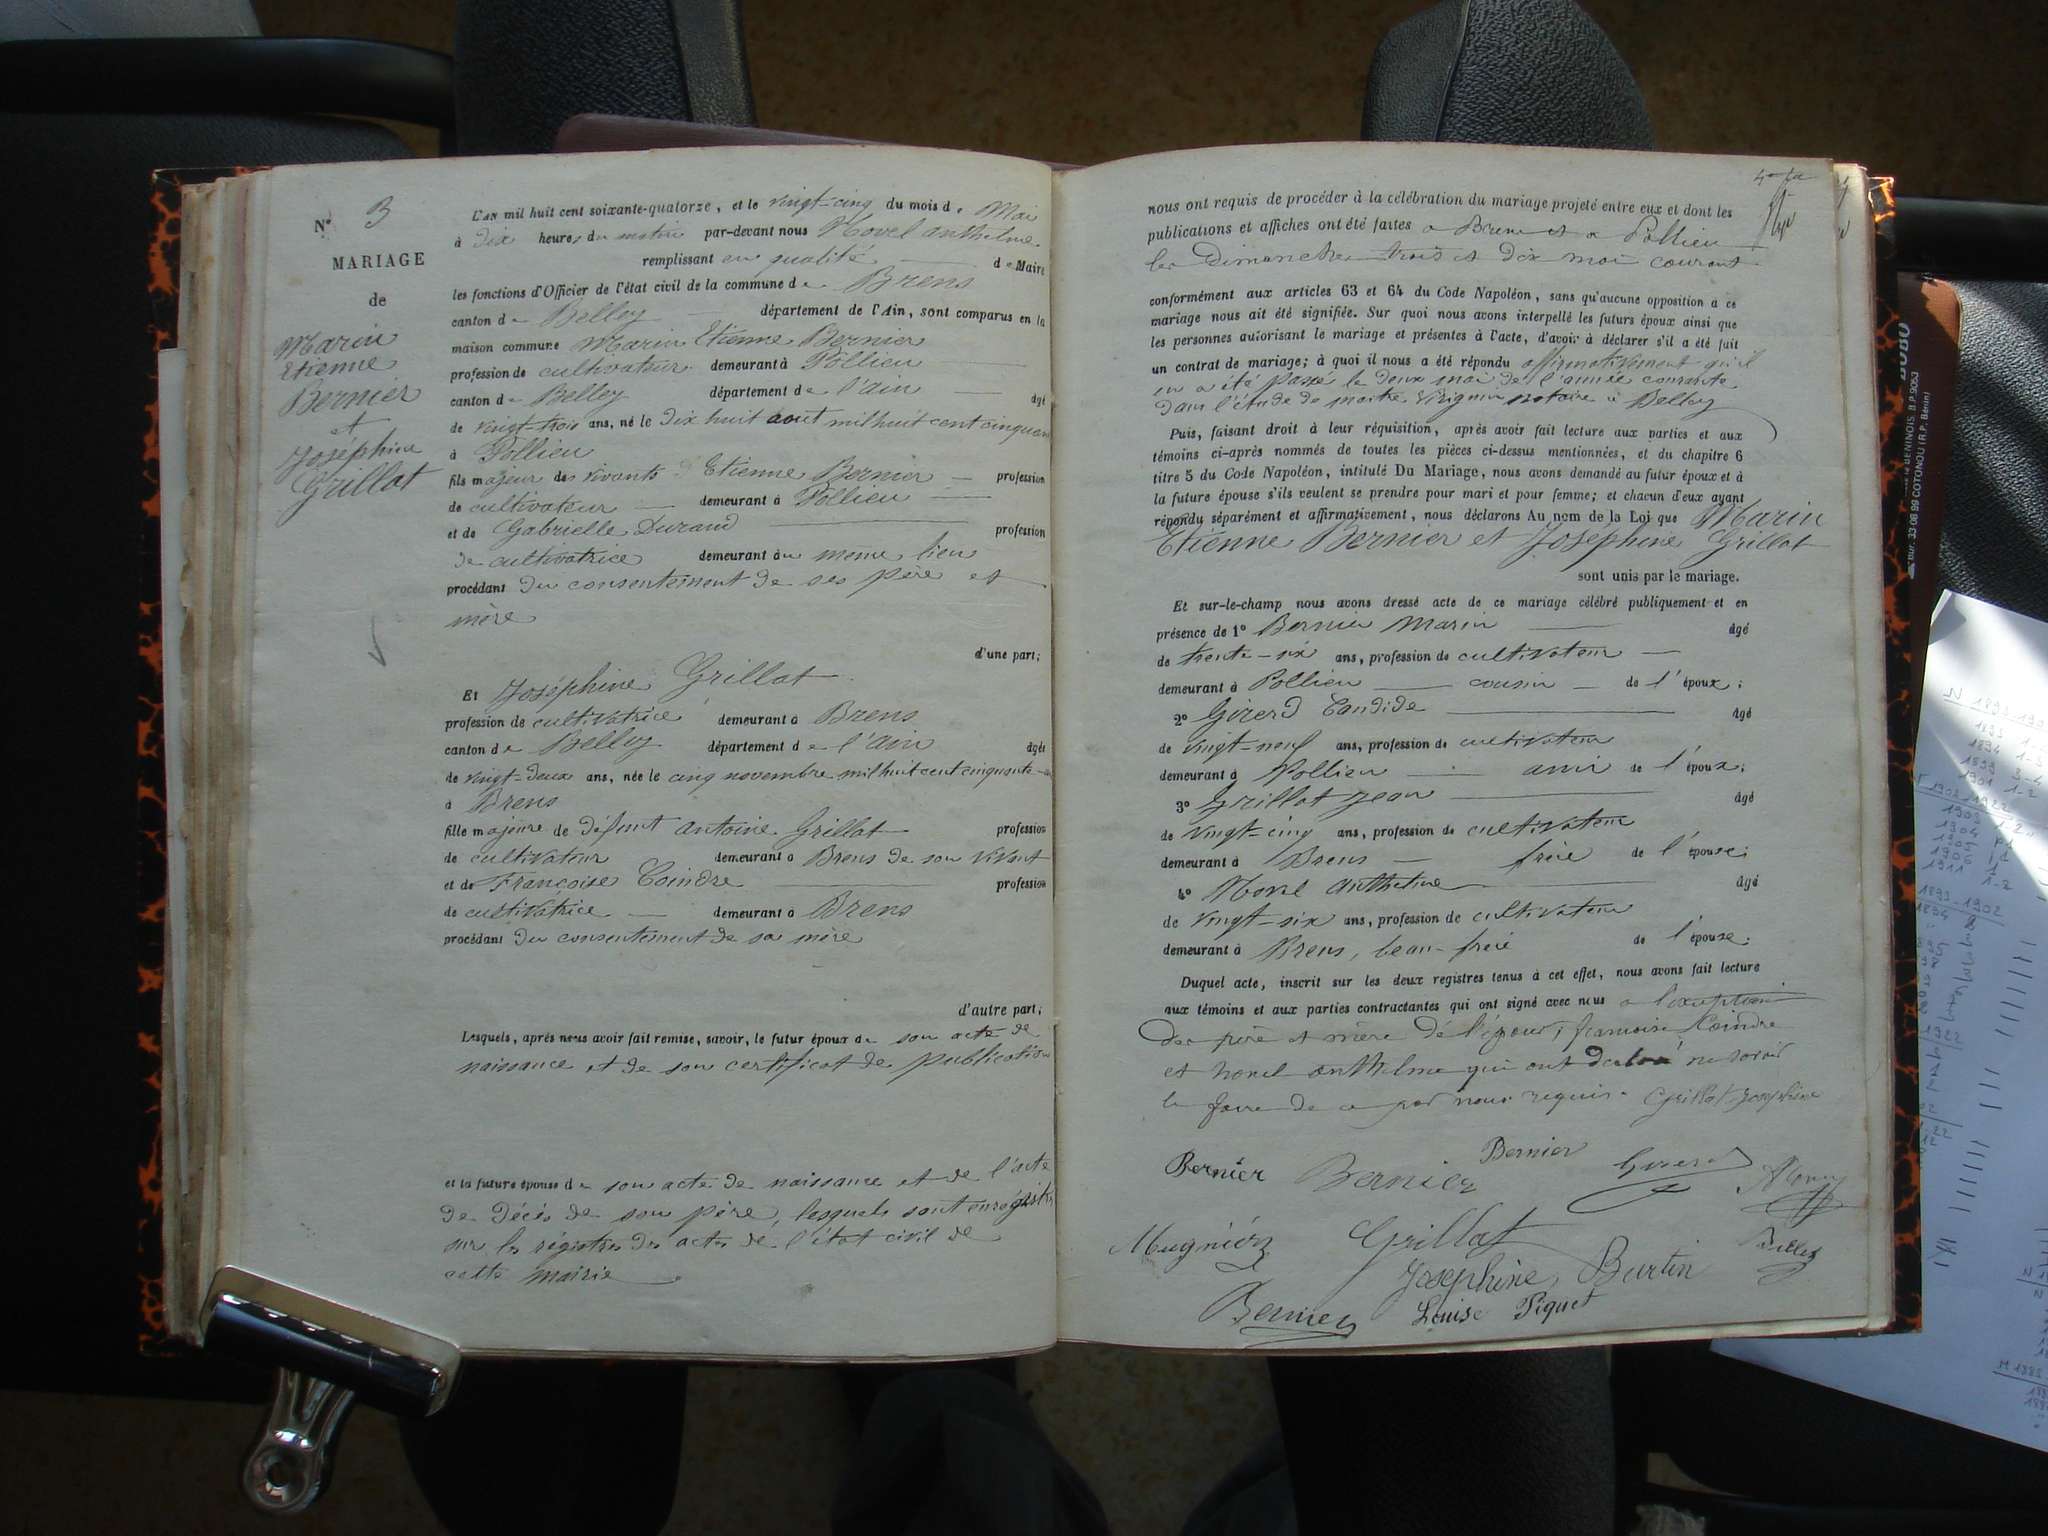 N° 3
MARIAGE
de
Marin
Etienne
Bernier
et
Joséphine
Grillat
L'an mil huit cent soixante-quatorze, et le vingt-cinq du mois de Mai
à dix heures du matin par-devant nous Morel anthelme
remplissant en qualité de Maire
les fonctions d'Officier de l'état civil de la commune de Brens
canton de Belley département de l'Ain, sont comparus en la
maison commune Marin Etienne Bernier
profession de cultivateur demeurant à Pollieu
canton de Belley département de l'ain âgé
de vingt-trois ans, né le dix huit aout mil huit cent cinquante
à Pollieu
fils majeur des vivants Etienne Bernier profession
de cultivateur demeurant à Pollieu
et de Gabrielle Durand profession
de cultivatrice demeurant au même lieu
procédant du consentement de ses père et
mère
d'une part;
Et Joséphine Grillat
profession de cultivatrice demeurant à Brens
canton de Belley département de l'ain âgée
de vingt-deux ans, née le cinq novembre mil huit cent cinquante-un
à Brens
fille majeure de défunt antoine Grillat profession
de cultivateur demeurant à Brens de son vivant
et de Françoise Coindre profession
de cultivatrice demeurant à Brens
procédant du consentement de sa mère
d'autre part;
Lesquels, après nous avoir fait remise, savoir, le futur époux de son acte de
naissance et de son certificat de publication
et la future épouse de son acte de naissance et de l'acte
de décès de son père, lesquels sont enrégistrés
sur les régistres des actes de l'état civil de
cette mairie
nous ont requis de procéder à la célébration du mariage projeté entre eux et dont les
publications et affiches ont été faites a Brens et a Pollieu
les Dimanches trois et dix mai courant
conformément aux articles 63 et 64 du Code Napoléon, sans qu'aucune opposition à ce
mariage nous ait été signifiée. Sur quoi nous avons interpellé les futurs époux ainsi que
les personnes autorisant le mariage et présentes à l'acte, d'avoir à déclarer s'il a été fait
un contrat de mariage; à quoi il nous a été répondu affirmativement qu'il
en a été passé le deux mai de l'année courante
dans l'étude de maitre notaire à Belley
Puis, faisant droit à leur réquisition, après avoir fait lecture aux parties et aux
témoins ci-après nommés de toutes les pièces ci-dessus mentionnées, et du chapitre 6
titre 5 du Code Napoléon, intitulé Du Mariage, nous avons demandé au futur époux et à
la future épouse s'ils veulent se prendre pour mari et pour femme; et chacun d'eux ayant
répondu séparément et affirmativement, nous déclarons Au nom de la Loi que Marin
Etienne Bernier et Joséphine Grillat
sont unis par le mariage.
Et sur-le-champ nous avons dressé acte de ce mariage célébré publiquement et en
présence de 1° Bernier Marin âgé
de trente-six ans, profession de cultivateur
demeurant à Pollieu cousin de l'époux;
2° Girerd Candide âgé
de vingt-neuf ans, profession de cultivateur
demeurant à Pollieu ami de l'époux;
3° Grillat Jean âgé
de vingt-cinq ans, profession de cultivateur
demeurant à Brens frère de l'épouse;
4° Morel anthelme âgé
de vingt-six ans, profession de cultivateur
demeurant à Brens, beau-frère de l'épouse;
Duquel acte, inscrit sur les deux registres tenus à cet effet, nous avons fait lecture
aux témoins et aux parties contractantes qui ont signé avec nous a l'exception
des père et mère de l'époux, francoise Coindre
et morel anthelme qui ont déclaré ne savoir
le faire de ce par nous requis. Grillat Joséphine
Bernier Bernier Bernier Girerd Morel
Mugnier Grillat
Joséphine Burtin
Bernier Louise Piquet
BENINOIS. B.P. 9053
33 08 99 COTONOU (R.P. Bénin)